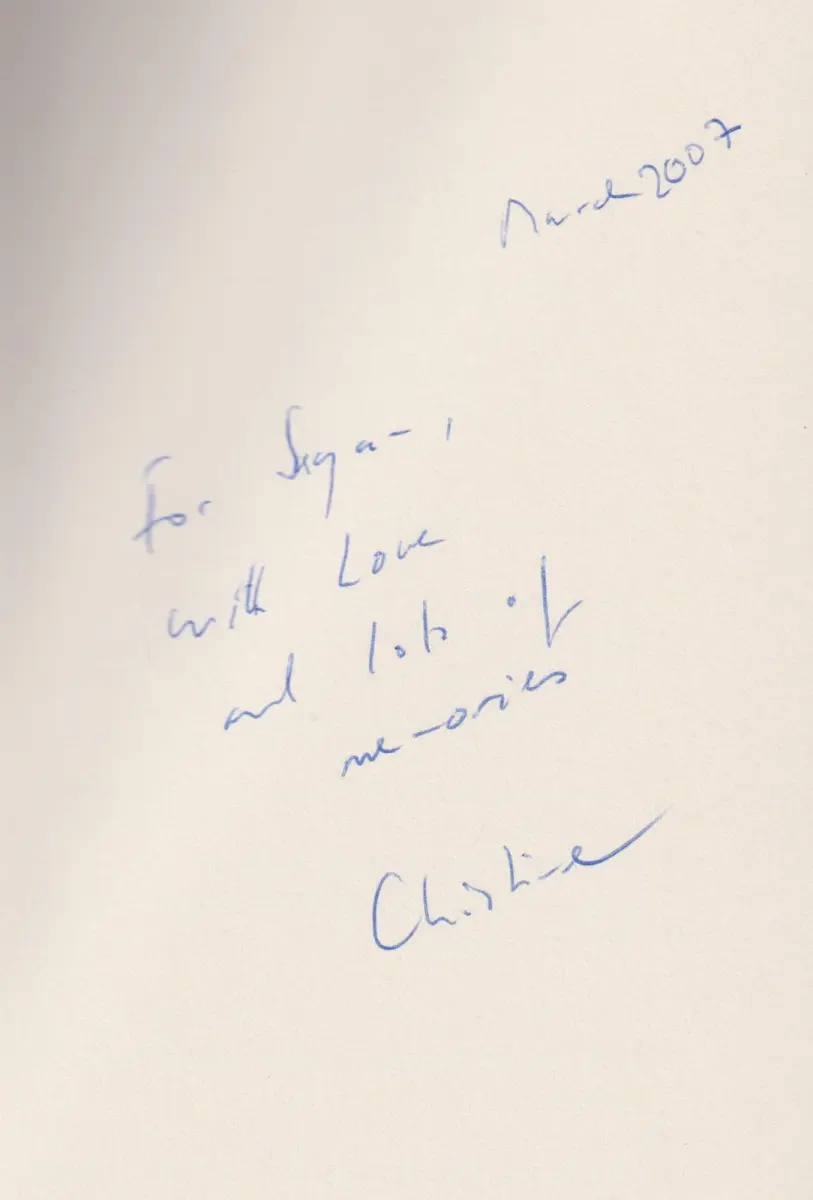 March 2007
For
with Love
and lots of
memories
Christine